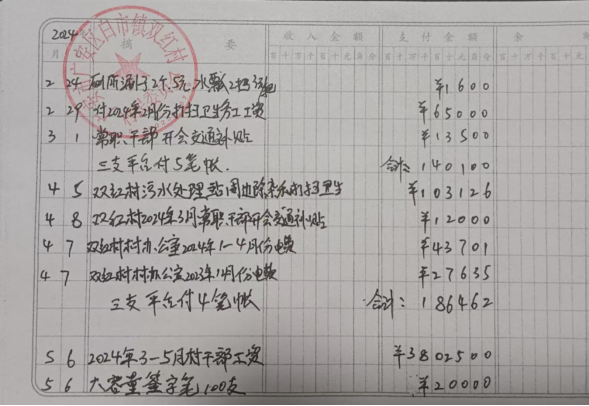 2024
月 摘 要 收入金额 支付金额 余
百十万千百十元角分 百十万千百十元角分
广安区白市镇双红村
2 24 厕所漏子2个5元,水瓢2把 ¥1600
2 29 付2024年2月份打扫卫生务工工资 ¥65000
3 1 常职干部开会交通补贴 ¥13500
三支平台付5笔帐. 合计: 140100
4 5 双红村污水处理站周边除杂草打扫卫生 ¥103126
4 8 双红村2024年3月常职干部开会交通补贴 ¥12000
4 7 双红村村办公室2024年1-4月份电费 ¥43701
4 7 双红村村办公室2023年11月份电费 ¥27635
三支平台付4笔帐 合计: 186462
5 6 2024年3-5月村干部工资 ¥3802500
5 6 大容量签字笔100支 ¥20000